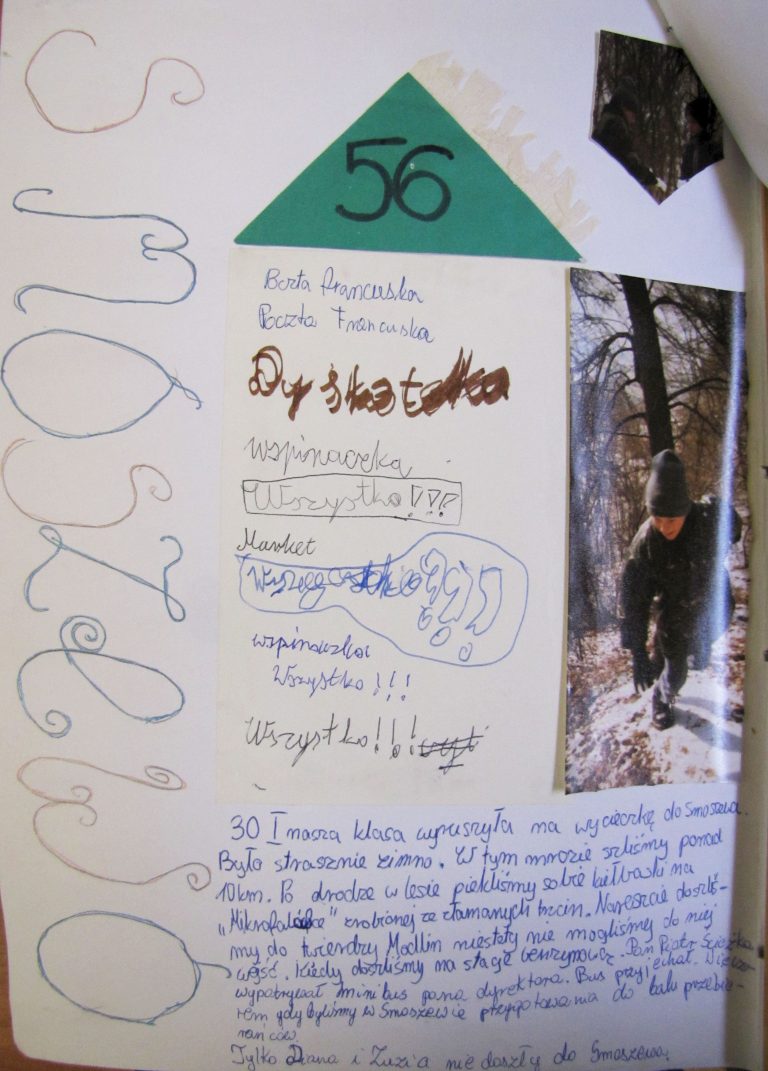 SMOSZEWO
56
Poczta Francuska
Poczta Francuska
Dyskoteka
wspinaczka
Wszystko!!!
Market
wspinaczka
Wszystko!!!
Wszystko!!!
30 I nasza klasa wyruszyła na wycieczkę do Smoszewa.
Było strasznie zimno. W tym mrozie szliśmy ponad
10km. Po drodze w lesie piekliśmy sobie kiełbaski na
"Mikrofalówce" zrobionej ze złamanych trzcin. Nareszcie doszliś-
my do twierdzy Modlin niestety nie mogliśmy do niej
wejść. Kiedy doszliśmy na stację benzynową. Pan Piotr Ścieżka
wypatrywał minibus pana dyrektora. Bus przyjechał. Wieczo-
rem gdy byliśmy w Smoszewie przygotowania do balu przebie-
rańców.
Tylko Diana i Zuzia nie doszły do Smoszewa.